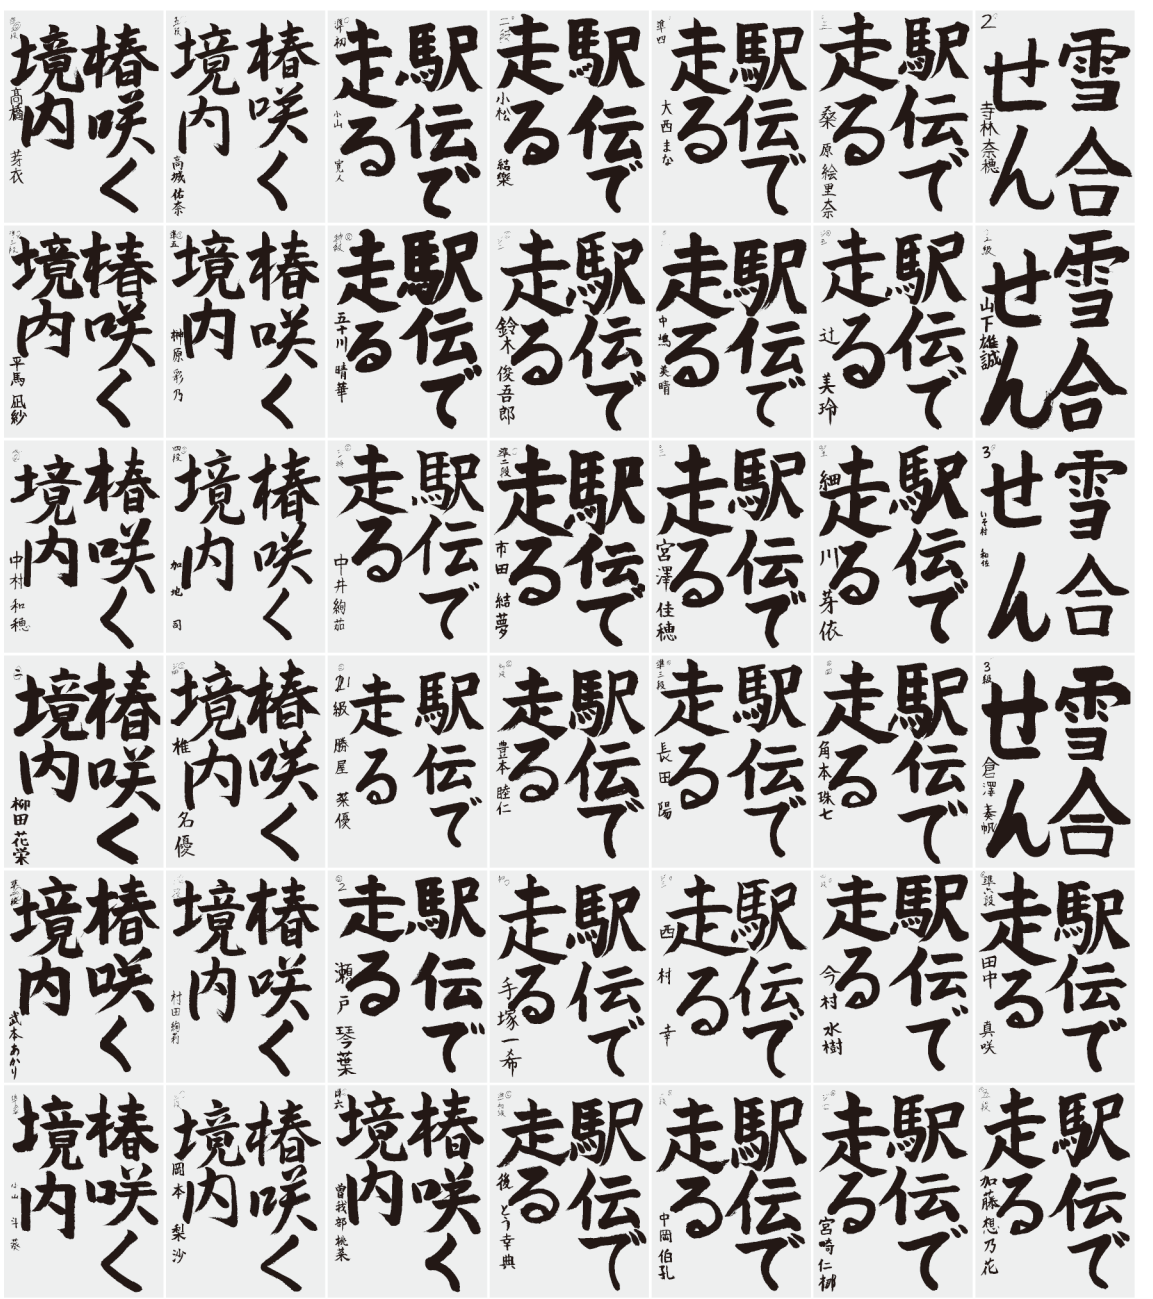 雪合
せん
2
寺林奈穂
駅伝で
走る
桑原絵里奈
駅伝で
走る
準四
大西まな
駅伝で
走る
小松 結樂
駅伝で
走る
準初
小山 寛人
椿咲く
境内
五段
高城佑奈
椿咲く
境内
高橋 芽衣
雪合
せん
山下雄誠
駅伝で
走る
辻 美玲
駅伝で
走る
中嶋 英晴
駅伝で
走る
鈴木俊吾郎
駅伝で
走る
五十川晴華
椿咲く
境内
準五
榊原彩乃
椿咲く
境内
平馬凪紗
雪合
せん
3
いそ村 和佐
駅伝で
走る
細川芽依
駅伝で
走る
宮澤佳穂
駅伝で
走る
準二段
市田結夢
駅伝で
走る
中井絢茄
椿咲く
境内
四段
加地 司
椿咲く
境内
中村和穂
雪合
せん
3級
倉澤奏帆
駅伝で
走る
角本珠七
駅伝で
走る
準三段
長田 陽
駅伝で
走る
豊本睦仁
駅伝で
走る
勝屋菜優
椿咲く
境内
椎名優
椿咲く
境内
柳田花栄
駅伝で
走る
準六段
田中真咲
駅伝で
走る
今村水樹
駅伝で
走る
西村 幸
駅伝で
走る
手塚一希
駅伝で
走る
2
瀬戸琴葉
椿咲く
境内
村田絢莉
椿咲く
境内
武本あかり
駅伝で
走る
加藤想乃花
駅伝で
走る
宮崎仁柳
駅伝で
走る
中岡伯孔
駅伝で
走る
後とう幸典
椿咲く
境内
準六
曽我部桃菜
椿咲く
境内
岡本梨沙
椿咲く
境内
小山斗葵